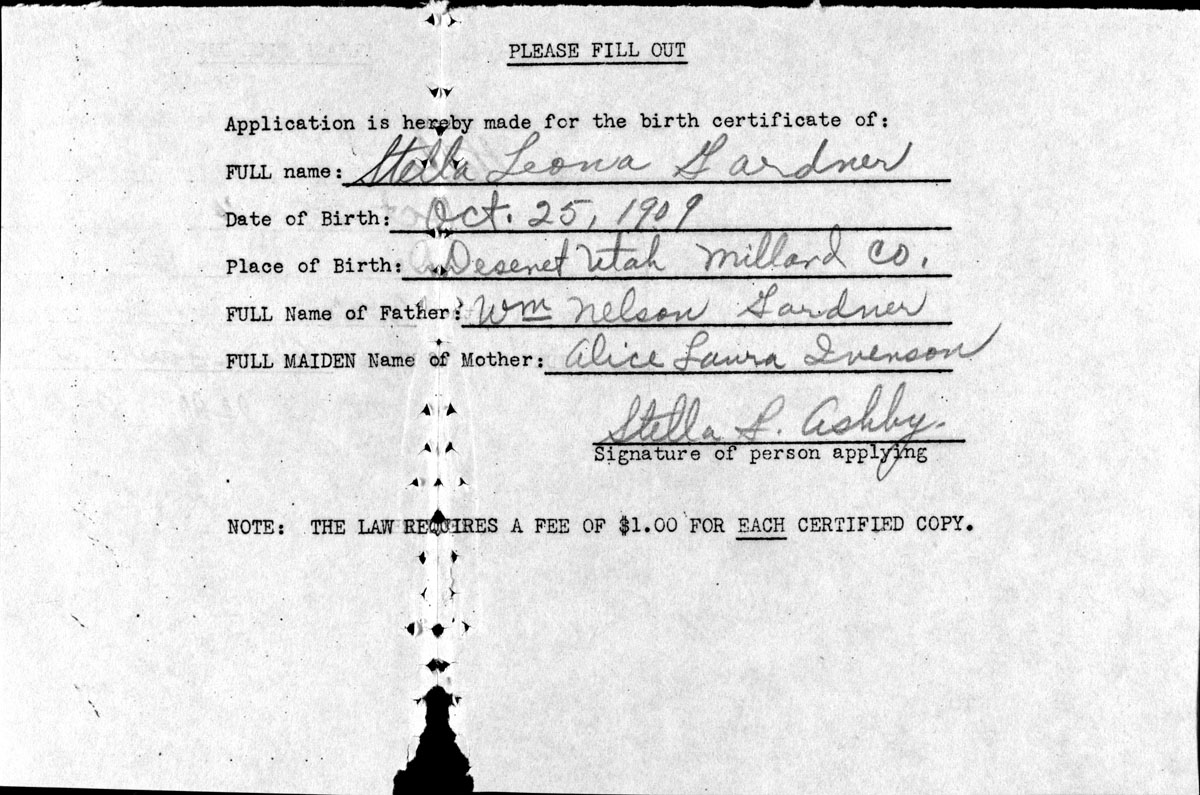 PLEASE FILL OUT
Application is hereby made for the birth certificate of:
FULL name: Stella Leona Gardner
Date of Birth: Oct. 25, 1909
Place of Birth: Deseret Utah Millard Co.
FULL Name of Father: Wm Nelson Gardner
FULL MAIDEN Name of Mother: Alice Laura Ivenson
Stella L. Ashby.
Signature of person applying
NOTE: THE LAW REQUIRES A FEE OF $1.00 FOR EACH CERTIFIED COPY.